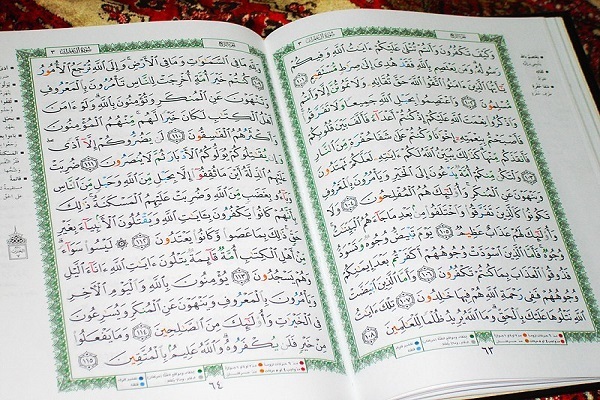 سُورَةُ آلِ عِمْرَانَ
وَكَيْفَ تَكْفُرُونَ وَأَنتُمْ تُتْلَىٰ عَلَيْكُمْ ءَايَٰتُ ٱللَّهِ وَفِيكُمْ
رَسُولُهُۥ وَمَن يَعْتَصِم بِٱللَّهِ فَقَدْ هُدِىَ إِلَىٰ صِرَٰطٍ مُّسْتَقِيمٍ
١٠١ يَٰٓأَيُّهَا ٱلَّذِينَ ءَامَنُوا۟ ٱتَّقُوا۟ ٱللَّهَ حَقَّ تُقَاتِهِۦ وَلَا تَمُوتُنَّ إِلَّا وَأَنتُم
مُّسْلِمُونَ ١٠٢ وَٱعْتَصِمُوا۟ بِحَبْلِ ٱللَّهِ جَمِيعًا وَلَا تَفَرَّقُوا۟
وَٱذْكُرُوا۟ نِعْمَتَ ٱللَّهِ عَلَيْكُمْ إِذْ كُنتُمْ أَعْدَآءً فَأَلَّفَ بَيْنَ قُلُوبِكُمْ
فَأَصْبَحْتُم بِنِعْمَتِهِۦٓ إِخْوَٰنًا وَكُنتُمْ عَلَىٰ شَفَا حُفْرَةٍ مِّنَ ٱلنَّارِ
فَأَنقَذَكُم مِّنْهَا كَذَٰلِكَ يُبَيِّنُ ٱللَّهُ لَكُمْ ءَايَٰتِهِۦ لَعَلَّكُمْ تَهْتَدُونَ
١٠٣ وَلْتَكُن مِّنكُمْ أُمَّةٌ يَدْعُونَ إِلَى ٱلْخَيْرِ وَيَأْمُرُونَ بِٱلْمَعْرُوفِ
وَيَنْهَوْنَ عَنِ ٱلْمُنكَرِ وَأُو۟لَٰٓئِكَ هُمُ ٱلْمُفْلِحُونَ ١٠٤ وَلَا
تَكُونُوا۟ كَٱلَّذِينَ تَفَرَّقُوا۟ وَٱخْتَلَفُوا۟ مِنۢ بَعْدِ مَا جَآءَهُمُ ٱلْبَيِّنَٰتُ
وَأُو۟لَٰٓئِكَ لَهُمْ عَذَابٌ عَظِيمٌ ١٠٥ يَوْمَ تَبْيَضُّ وُجُوهٌ وَتَسْوَدُّ
وُجُوهٌ فَأَمَّا ٱلَّذِينَ ٱسْوَدَّتْ وُجُوهُهُمْ أَكَفَرْتُم بَعْدَ إِيمَٰنِكُمْ
فَذُوقُوا۟ ٱلْعَذَابَ بِمَا كُنتُمْ تَكْفُرُونَ ١٠٦ وَأَمَّا ٱلَّذِينَ ٱبْيَضَّتْ
وُجُوهُهُمْ فَفِى رَحْمَةِ ٱللَّهِ هُمْ فِيهَا خَٰلِدُونَ ١٠٧ تِلْكَ ءَايَٰتُ
ٱللَّهِ نَتْلُوهَا عَلَيْكَ بِٱلْحَقِّ وَمَا ٱللَّهُ يُرِيدُ ظُلْمًا لِّلْعَٰلَمِينَ ١٠٨
٦٣
سُورَةُ آلِ عِمْرَانَ
وَلِلَّهِ مَا فِى ٱلسَّمَٰوَٰتِ وَمَا فِى ٱلْأَرْضِ وَإِلَى ٱللَّهِ تُرْجَعُ ٱلْأُمُورُ
١٠٩ كُنتُمْ خَيْرَ أُمَّةٍ أُخْرِجَتْ لِلنَّاسِ تَأْمُرُونَ بِٱلْمَعْرُوفِ
وَتَنْهَوْنَ عَنِ ٱلْمُنكَرِ وَتُؤْمِنُونَ بِٱللَّهِ وَلَوْ ءَامَنَ
أَهْلُ ٱلْكِتَٰبِ لَكَانَ خَيْرًا لَّهُم مِّنْهُمُ ٱلْمُؤْمِنُونَ
وَأَكْثَرُهُمُ ٱلْفَٰسِقُونَ ١١٠ لَن يَضُرُّوكُمْ إِلَّآ أَذًى
وَإِن يُقَٰتِلُوكُمْ يُوَلُّوكُمُ ٱلْأَدْبَارَ ثُمَّ لَا يُنصَرُونَ ١١١ ضُرِبَتْ
عَلَيْهِمُ ٱلذِّلَّةُ أَيْنَ مَا ثُقِفُوٓا۟ إِلَّا بِحَبْلٍ مِّنَ ٱللَّهِ وَحَبْلٍ مِّنَ ٱلنَّاسِ
وَبَآءُو بِغَضَبٍ مِّنَ ٱللَّهِ وَضُرِبَتْ عَلَيْهِمُ ٱلْمَسْكَنَةُ ذَٰلِكَ
بِأَنَّهُمْ كَانُوا۟ يَكْفُرُونَ بِـَٔايَٰتِ ٱللَّهِ وَيَقْتُلُونَ ٱلْأَنۢبِيَآءَ بِغَيْرِ
حَقٍّ ذَٰلِكَ بِمَا عَصَوا۟ وَّكَانُوا۟ يَعْتَدُونَ ١١٢ لَيْسُوا۟ سَوَآءً
مِّنْ أَهْلِ ٱلْكِتَٰبِ أُمَّةٌ قَآئِمَةٌ يَتْلُونَ ءَايَٰتِ ٱللَّهِ ءَانَآءَ ٱلَّيْلِ
وَهُمْ يَسْجُدُونَ ١١٣ يُؤْمِنُونَ بِٱللَّهِ وَٱلْيَوْمِ ٱلْءَاخِرِ
وَيَأْمُرُونَ بِٱلْمَعْرُوفِ وَيَنْهَوْنَ عَنِ ٱلْمُنكَرِ وَيُسَٰرِعُونَ
فِى ٱلْخَيْرَٰتِ وَأُو۟لَٰٓئِكَ مِنَ ٱلصَّٰلِحِينَ ١١٤ وَمَا يَفْعَلُوا۟
مِنْ خَيْرٍ فَلَن يُكْفَرُوهُ وَٱللَّهُ عَلِيمٌۢ بِٱلْمُتَّقِينَ ١١٥
٦٤